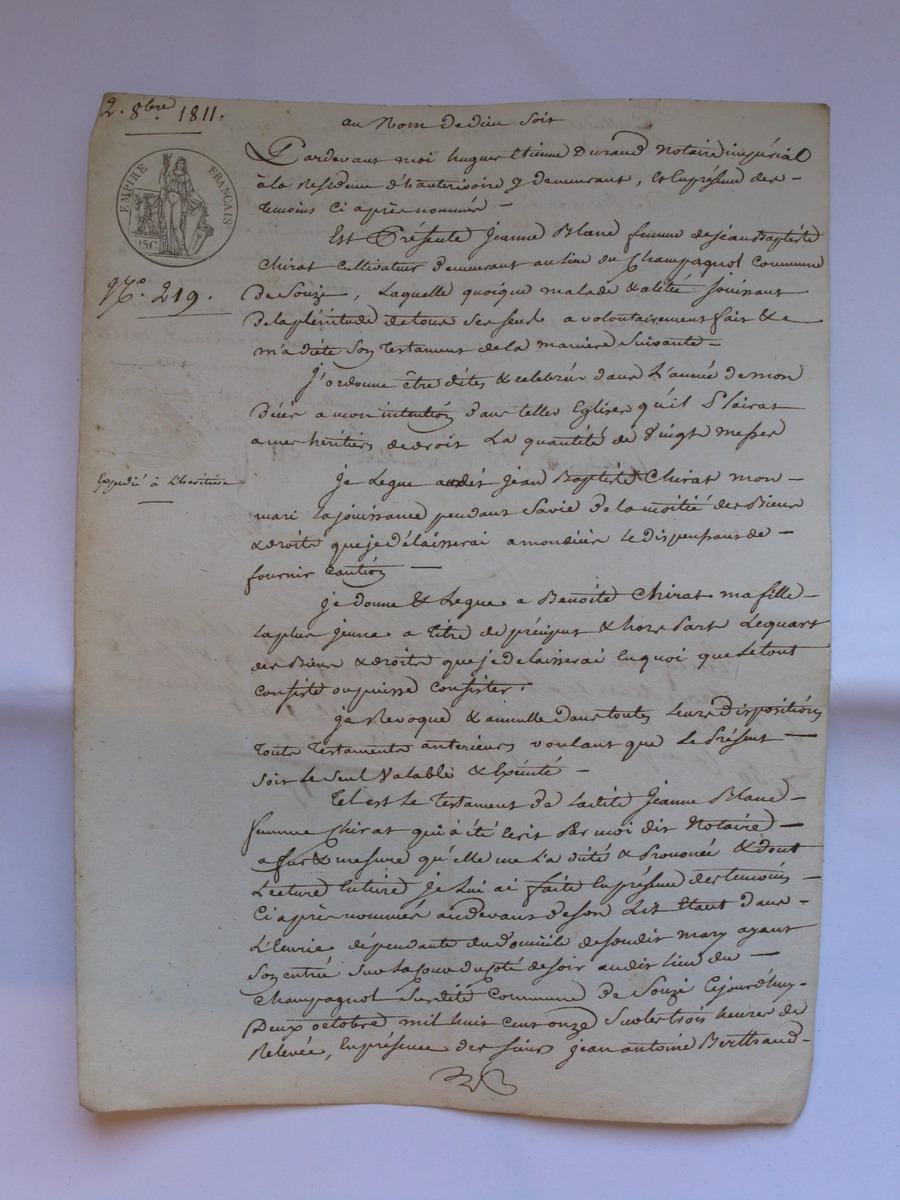 2. 8bre 1811.
au Nom de dieu soit
EMPIRE FRANÇAIS
25C
No. 219.
Expédié à L'heritière
Pardevant moi hugues Etienne Durand Notaire impérial
à la Residence d'hauterivoire y demeurant, et En présence des
temoins ci après nommés
Est Présente Jeanne Blanc femme de jéan Baptiste
Chirat cultivateur demeurant au lieu du Champagnol commune
de Souzi, Laquelle quoique malade & alitée jouissant
de la plénitude de tous ses sens a volontairement fait & 
m'a dicté son testament de la maniere suivante
J'ordonne être dites & celebrés dans L'année de mon
décès a mon intention dans telles Eglises qu'il Plairat
a mes héritiers de droit La quantité de Vingt messes
je Legue audit jean Baptiste Chirat mon
mari La jouissance pendant sa vie de la moitié des Biens
& droits que je délaisserai a mon décès le dispensant de
fournir caution
je donne & Legue a Benoîte Chirat ma fille
La plus jeune a titre de préciput & hors Part Le quart
des Biens & droits que je delaisserai En quoi que Le tout
consiste ou puisse consister.
je Revoque & annulle dans toutes Leurs dispositions
touts testaments anterieurs voulant que Le Présent
soit Le seul Valable & Exécuté
Tel est Le testament de Ladite Jeanne Blanc
femme Chirat qui a été Ecrit Par moi dit Notaire
a fur & mesure qu'elle me L'a dicté & Prononcé & dont
Lecture Entiere je Lui ai faite En présence des temoins
ci après nommés au devant de son Lit Etant dans
L'Ecurie dépendante du domicile de son dit mary ayant
son entrée sur La cour du coté de soir audit Lieu du
Champagnol susdite Commune de Souzi cejourd'huy
Deux octobre mil huit cent onze sur les trois heures de
Relevée, En présence des sieurs jean antoine Berthaud